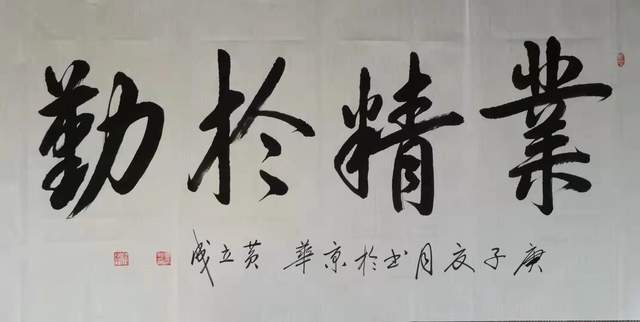 業精於勤
庚子夏月书於京華 黄立成